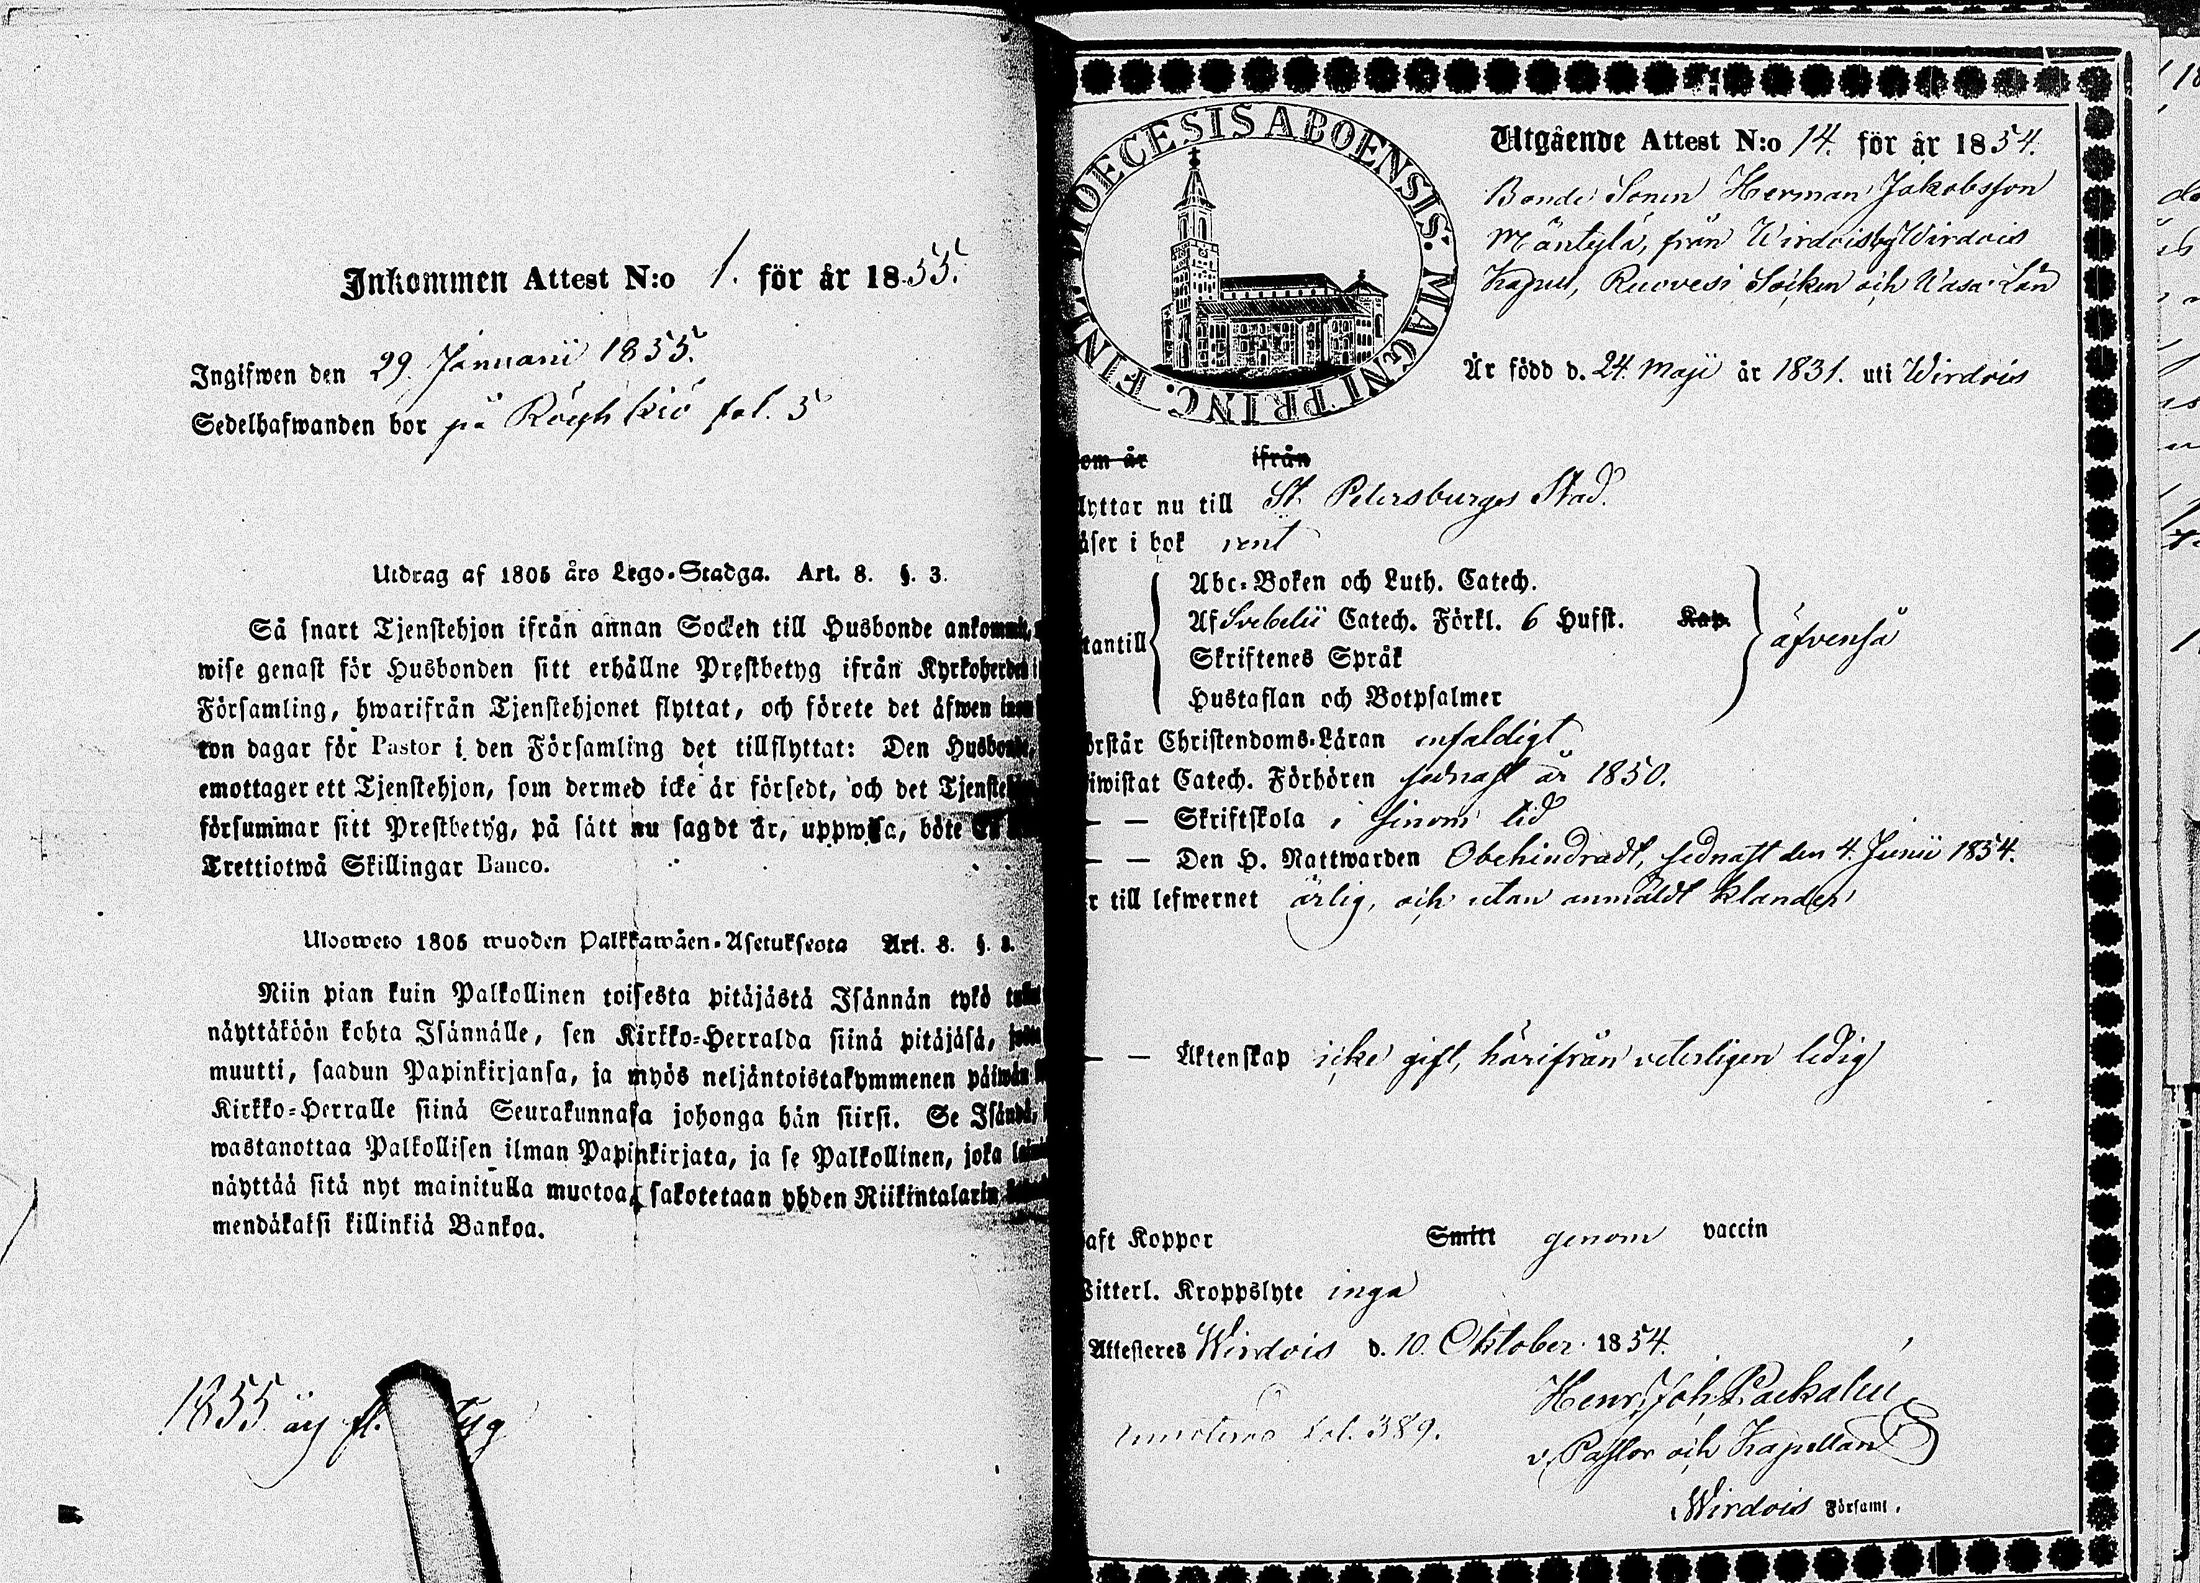 Inkommen Attest N:o 1. för år 1855.
Ingifwen den 29 Januarii 1855.
Sedelhafwanden bor på fol. 5
Utdrag af 1805 års Lego-Stadga. Art. 8. §. 3.
Så snart Tjenstehjon ifrån annan Socken till Husbonde
wise genast för Husbonden sitt erhållne Prestbetyg ifrån
Församling, hwarifrån Tjenstehjonet flyttat, och förete det äfwen
ton dagar för Pastor i den Församling det tillflyttat: Den
emottager ett Tjenstehjon, som dermed icke är försedt, och det
försummar sitt Prestbetyg, på sätt nu sagdt är, uppwisa, böte
Trettiotwå Skillingar Banco.
Ulosweto 1805 wuoden Palkkawäen-Asetuksesta Art. 8. §. 3.
Niin pian kuin Palkollinen toisesta pitäjästä Isännän tykö
näyttäköön kohta Isännälle, sen Kirkko-Herralda siinä pitäjäsä,
muutti, saadun Papinkirjansa, ja myös neljäntoistakymmenen
Kirkko-Herralle siinä Seurakunnasa johonga hän siirsi. Se
wastanottaa Palkollisen ilman Papinkirjata, ja se Palkollinen, joka
näyttää sitä nyt mainitulla muotoa, sakotetaan yhden Riikintalarin
mendäkaksi killinkiä Bankoa.
1855 fl.
DIOECESIS ABOENSIS. MAGNI PRINC. FINL.
Utgående Attest N:o 14. för år 1854.
Bonde Sonen Herman Jakobsson
Mäntylä, från Wirdoisby Wirdois
Kapell, Ruovesi Socken och Wasa Län
Är född d. 24 Maji år 1831. uti Wirdois
om år ifrån
lyttar nu till St. Petersburgs Stad.
äser i bok rent
Abc-Boken och Luth. Catech.
Af Svebelii Catech. Förkl. 6 Hufst. Kap.
tantill äfvenså
Skriftenes Språk
Hustaflan och Botpsalmer
örstår Christendoms-Läran enfaldigt
iwistat Catech. Förhören sednast år 1850.
— — Skriftskola i sinom tid
— — Den H. Nattwarden Obehindradt, sednast den 4. Junii 1854.
r till lefwernet ärlig, och utan anmäldt klander
— — Äktenskap icke gift, härifrån veterligen ledig
aft Koppor Smitt genom vaccin
Witterl. Kroppslyte inga
Attesteres Wirdois d. 10. Oktober 1854.
Henr. Joh.
fol. 389.
v. Pastor och Kapellan
Wirdois Församl.